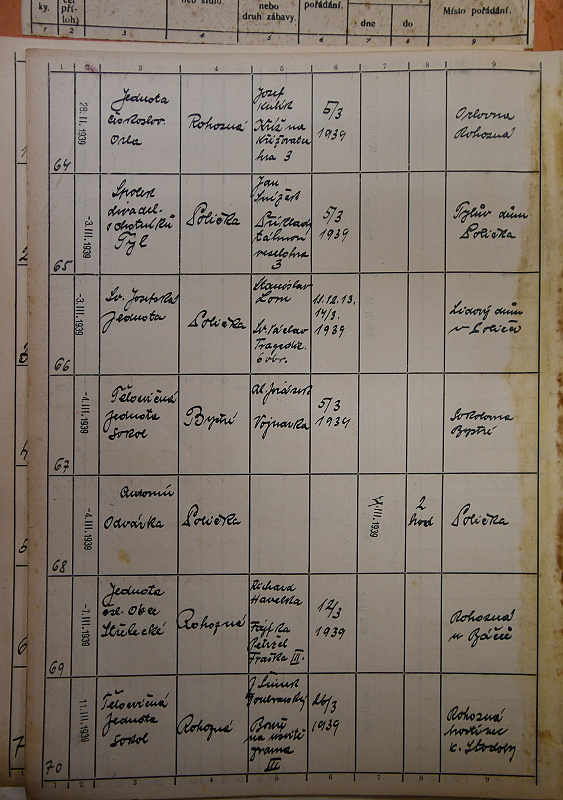 ky.
čet
pří-
loh)
neb sídlo.
nebo
druh zábavy.
pořádání.
dne
do
Místo pořádání.
1 2 3 4 5 6 7 8 9
1 2 3 4 5 6 7 8 9
64
28. II. 1939
Jednota
českoslov.
Orla
Rohozná
Josef
Kříž na
křižovatce
hra 3
5/3
1939
Orlovna
Rohozná
65
-3. III. 1939
Spolek
divadel.
ochotníků
Tyl
Polička
Jan
Snížek
veselohra
3
5/3
1939
Tylův dům
Polička
66
-3. III. 1939
Sv. Josefská
Jednota
Polička
Stanislav
Lom
Sv. Václav
Tragedie
6 obr.
11. 12. 13.
14/3.
1939
Lidový dům
v Poličce
67
-4. III. 1939
Tělocvičná
Jednota
Sokol
Bystré
Al. Jirásek
Vojnarka
5/3
1939
Sokolovna
Bystré
68
-4. III. 1939
Odvárka
Polička
III. 1939
2
hod
Polička
69
-7. III. 1939
Jednota
čsl. Obce
Střelecké
Rohozná
Richard
Havelka
Fajfka
Petržel
Fraška III.
12/3
1939
Rohozná
u
70
11. III. 1939
Tělocvičná
Jednota
Sokol
Rohozná
III
26/3
1939
Rohozná
hostinec
k. Stodoly
1 2 3 4 5 6 7 8 9